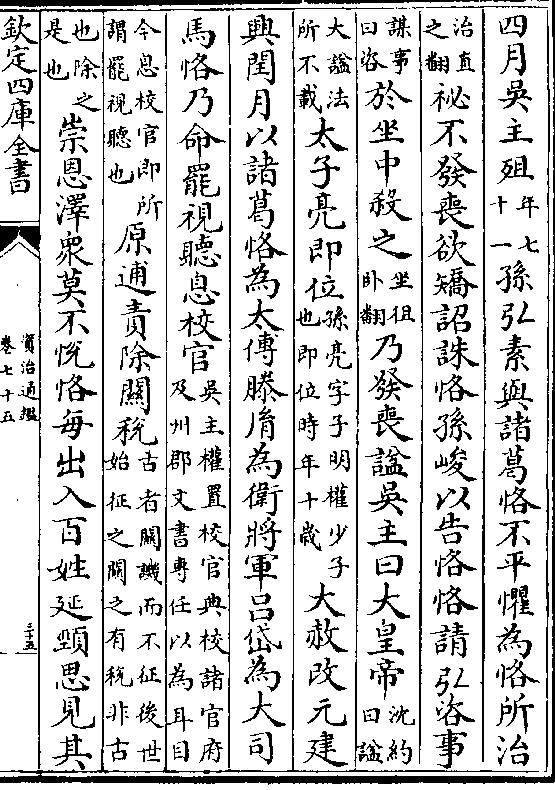 四月吳主殂年七十一孫弘素與諸葛恪不平懼為恪所治
治直之翻祕不發喪欲矯詔誅恪孫峻以告恪恪請弘咨事
謀事曰咨於坐中殺之坐徂卧翻乃發喪諡吳主曰大皇帝沈約曰諡
大諡法所不載太子亮即位孫亮字子明權少子也即位時年十歲大赦改元建
興閏月以諸葛恪為太傅滕胤為衛將軍呂岱為大司
馬恪乃命罷視聽息校官吳主權置校官典校諸官府及州郡文書專任以為耳目
今息校官即所謂罷視聽也原逋責除關稅古者關譏而不征後世始征之關之有稅非古
也除之是也崇恩澤衆莫不悅恪每出入百姓延頸思見其
欽定四庫全書
資治通鑑
卷七十五
三十五